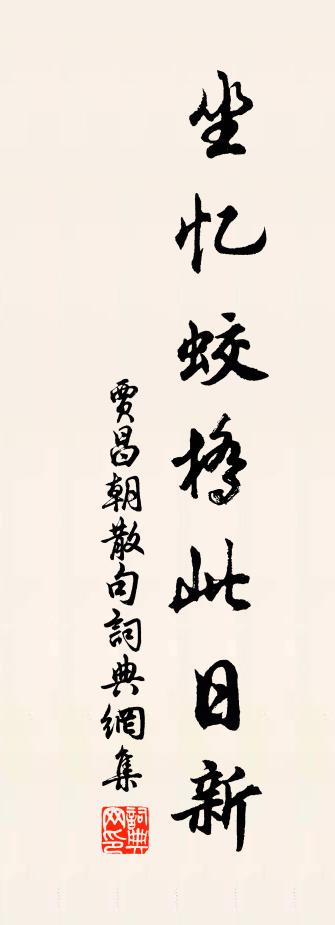 坐忆蛟桥此日新
贾昌朝散句詞典網集
詞典网印